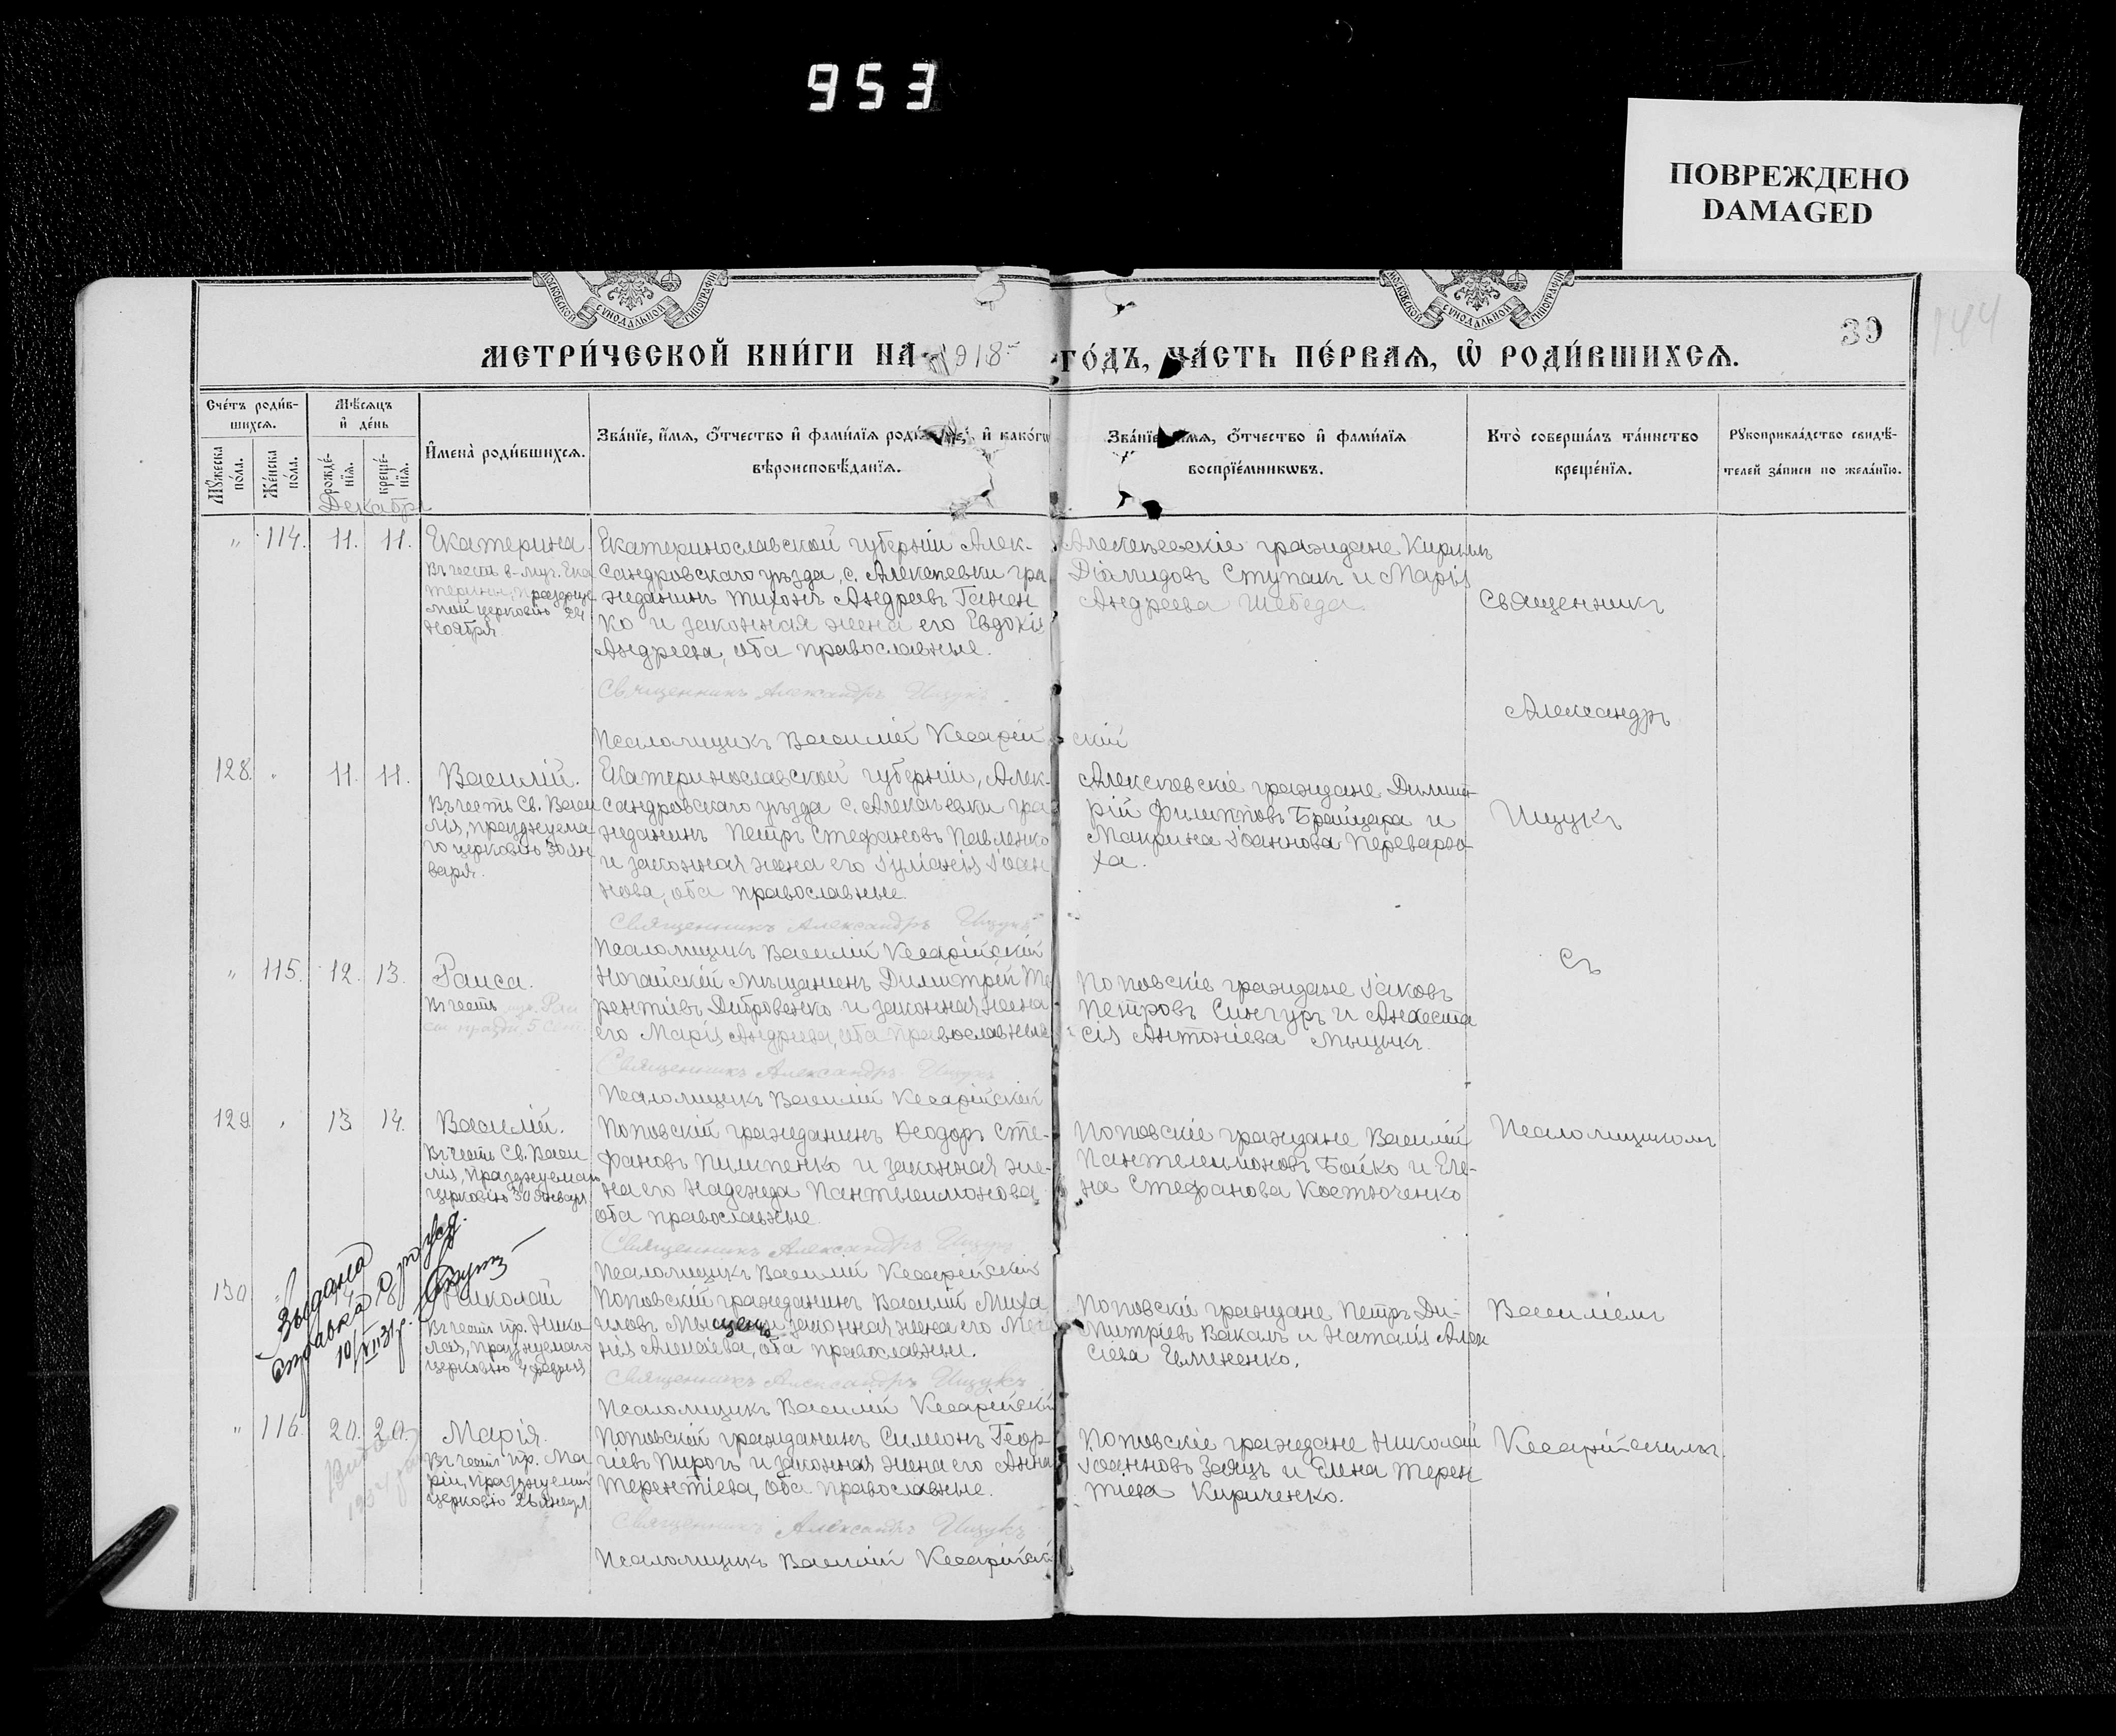 953
ПОВРЕЖДЕНО
DAMAGED
МОСКОВСКОЙ СѴНОДАЛЬНОЙ ТИПОГРАФІИ
МОСКОВСКОЙ СѴНОДАЛЬНОЙ ТИПОГРАФІИ
39
144
МЕТРИ́ЧЕСКОЙ КНИ́ГИ НА 1918 ГО́ДЪ, ЧА́СТЬ ПЕ́РВАѦ, Ѡ҆ РОДИ́ВШИХСѦ.
Сче́тъ роди́в-
шихсѧ.
Мꙋ́жеска по́ла.
Же́нска по́ла.
Мѣ́сѧцъ
и҆ де́нь
рожде́-
нїѧ.
креще́-
нїѧ.
Декабрь
И҆мена̀ роди́вшихсѧ.
Зва́нїе, и҆́мѧ, ѻ҆́тчество и҆ фами́лїѧ роди́телей, и҆ како́гѡ
вѣроисповѣ́данїѧ.
Зва́нїе, и҆́мѧ, ѻ҆́тчество и҆ фами́лїѧ
воспрїе́мникѡвъ.
Кто̀ соверша́лъ та́инство
креще́нїѧ.
Рꙋкоприкла́дство свидѣ́-
телей за́писи по жела́нїю.
" 114. 11. 11. Екатерина.
Въ честь в-муч. Ека
терины, празднуе
мой церковію 24
ноября.
Екатеринославской губерніи Алек-
сандровскаго уѣзда, с. Алексѣевки гра
жданинъ Тихонъ Андреевъ Ганен
ко и законная жена его Евдокія
Андреева, оба православные.
Священникъ Александръ Ищукъ
Псаломщикъ Василій Кесарійскій
Алексѣевскіе граждане Кириллъ
Діомидовъ Ступакъ и Марія
Андреева Шебеда.
Священникъ
Александръ
128. " 11. 11. Василій.
Въ честь Св. Васи
лія, празднуема-
го церковію 30 ян
варя.
Екатеринославской губерніи, Алек-
сандровскаго уѣзда с. Алексѣевки гра
жданинъ Петръ Стефановъ Павленко
и законная жена его Іуліанія Іоан
нова, оба православные.
Священникъ Александръ Ищукъ
Псаломщикъ Василій Кесарійскій
Алексѣевскіе граждане Димит-
рій Филипповъ Брайцара и
Макрина Іоаннова Перевароз-
ха.
Ищукъ
съ
" 115. 12. 13. Раиса.
Въ честь муч. Раи
сы праздн. 5 Сент.
Ногайскій мѣщанинъ Димитрій Те
рентіевъ Дибровенко и законная жена
его Марія Андреева, оба православные
Священникъ Александръ Ищукъ
Псаломщикъ Василій Кесарійскій
Поповскіе граждане Іаковъ
Петровъ Сингуръ и Анаста
сія Антоніева Мыцыкъ.
129. " 13 14. Василій.
Въ честь Св. Васи
лія, празднуемаго
церковію 30 января
Поповскій гражданинъ Ѳеодоръ Сте-
фановъ Пилипенко и законная же-
на его Надежда Пантелеимонова
оба православные.
Священникъ Александръ Ищукъ
Псаломщикъ Василій Кесарійскій
Поповскіе граждане Василій
Пантелеимоновъ Бойко и Еле-
на Стефанова Костюченко
Псаломщикомъ
130. Николай
Въ честь пр. Нико
лая, празднуемаго
церковію 4 февраля
Поповскій гражданинъ Василій Миха
иловъ и законная жена его
Алексіева, оба православные.
Священникъ Александръ Ищукъ
Псаломщикъ Василій Кесарійскій
Поповскіе граждане Петръ Ди-
митріевъ Вакалъ и Наталія Алек
сіева
Василіемъ
Выдана
справка о рожд.
10/VII 31 р.
" 116. 20. 20. Марія.
Въ честь пр. Ма-
ріи, празднуемой
церковію 26 января
Поповскій гражданинъ Симеонъ Геор-
гіевъ Пирогъ и законная жена его Анна
Терентіева, оба православные.
Священникъ Александръ Ищукъ
Псаломщикъ Василій Кесарійскій
Поповскіе граждане Николай
Іоанновъ Заяцъ и Елена Терен
тіева Кириченко.
Кесарійскимъ